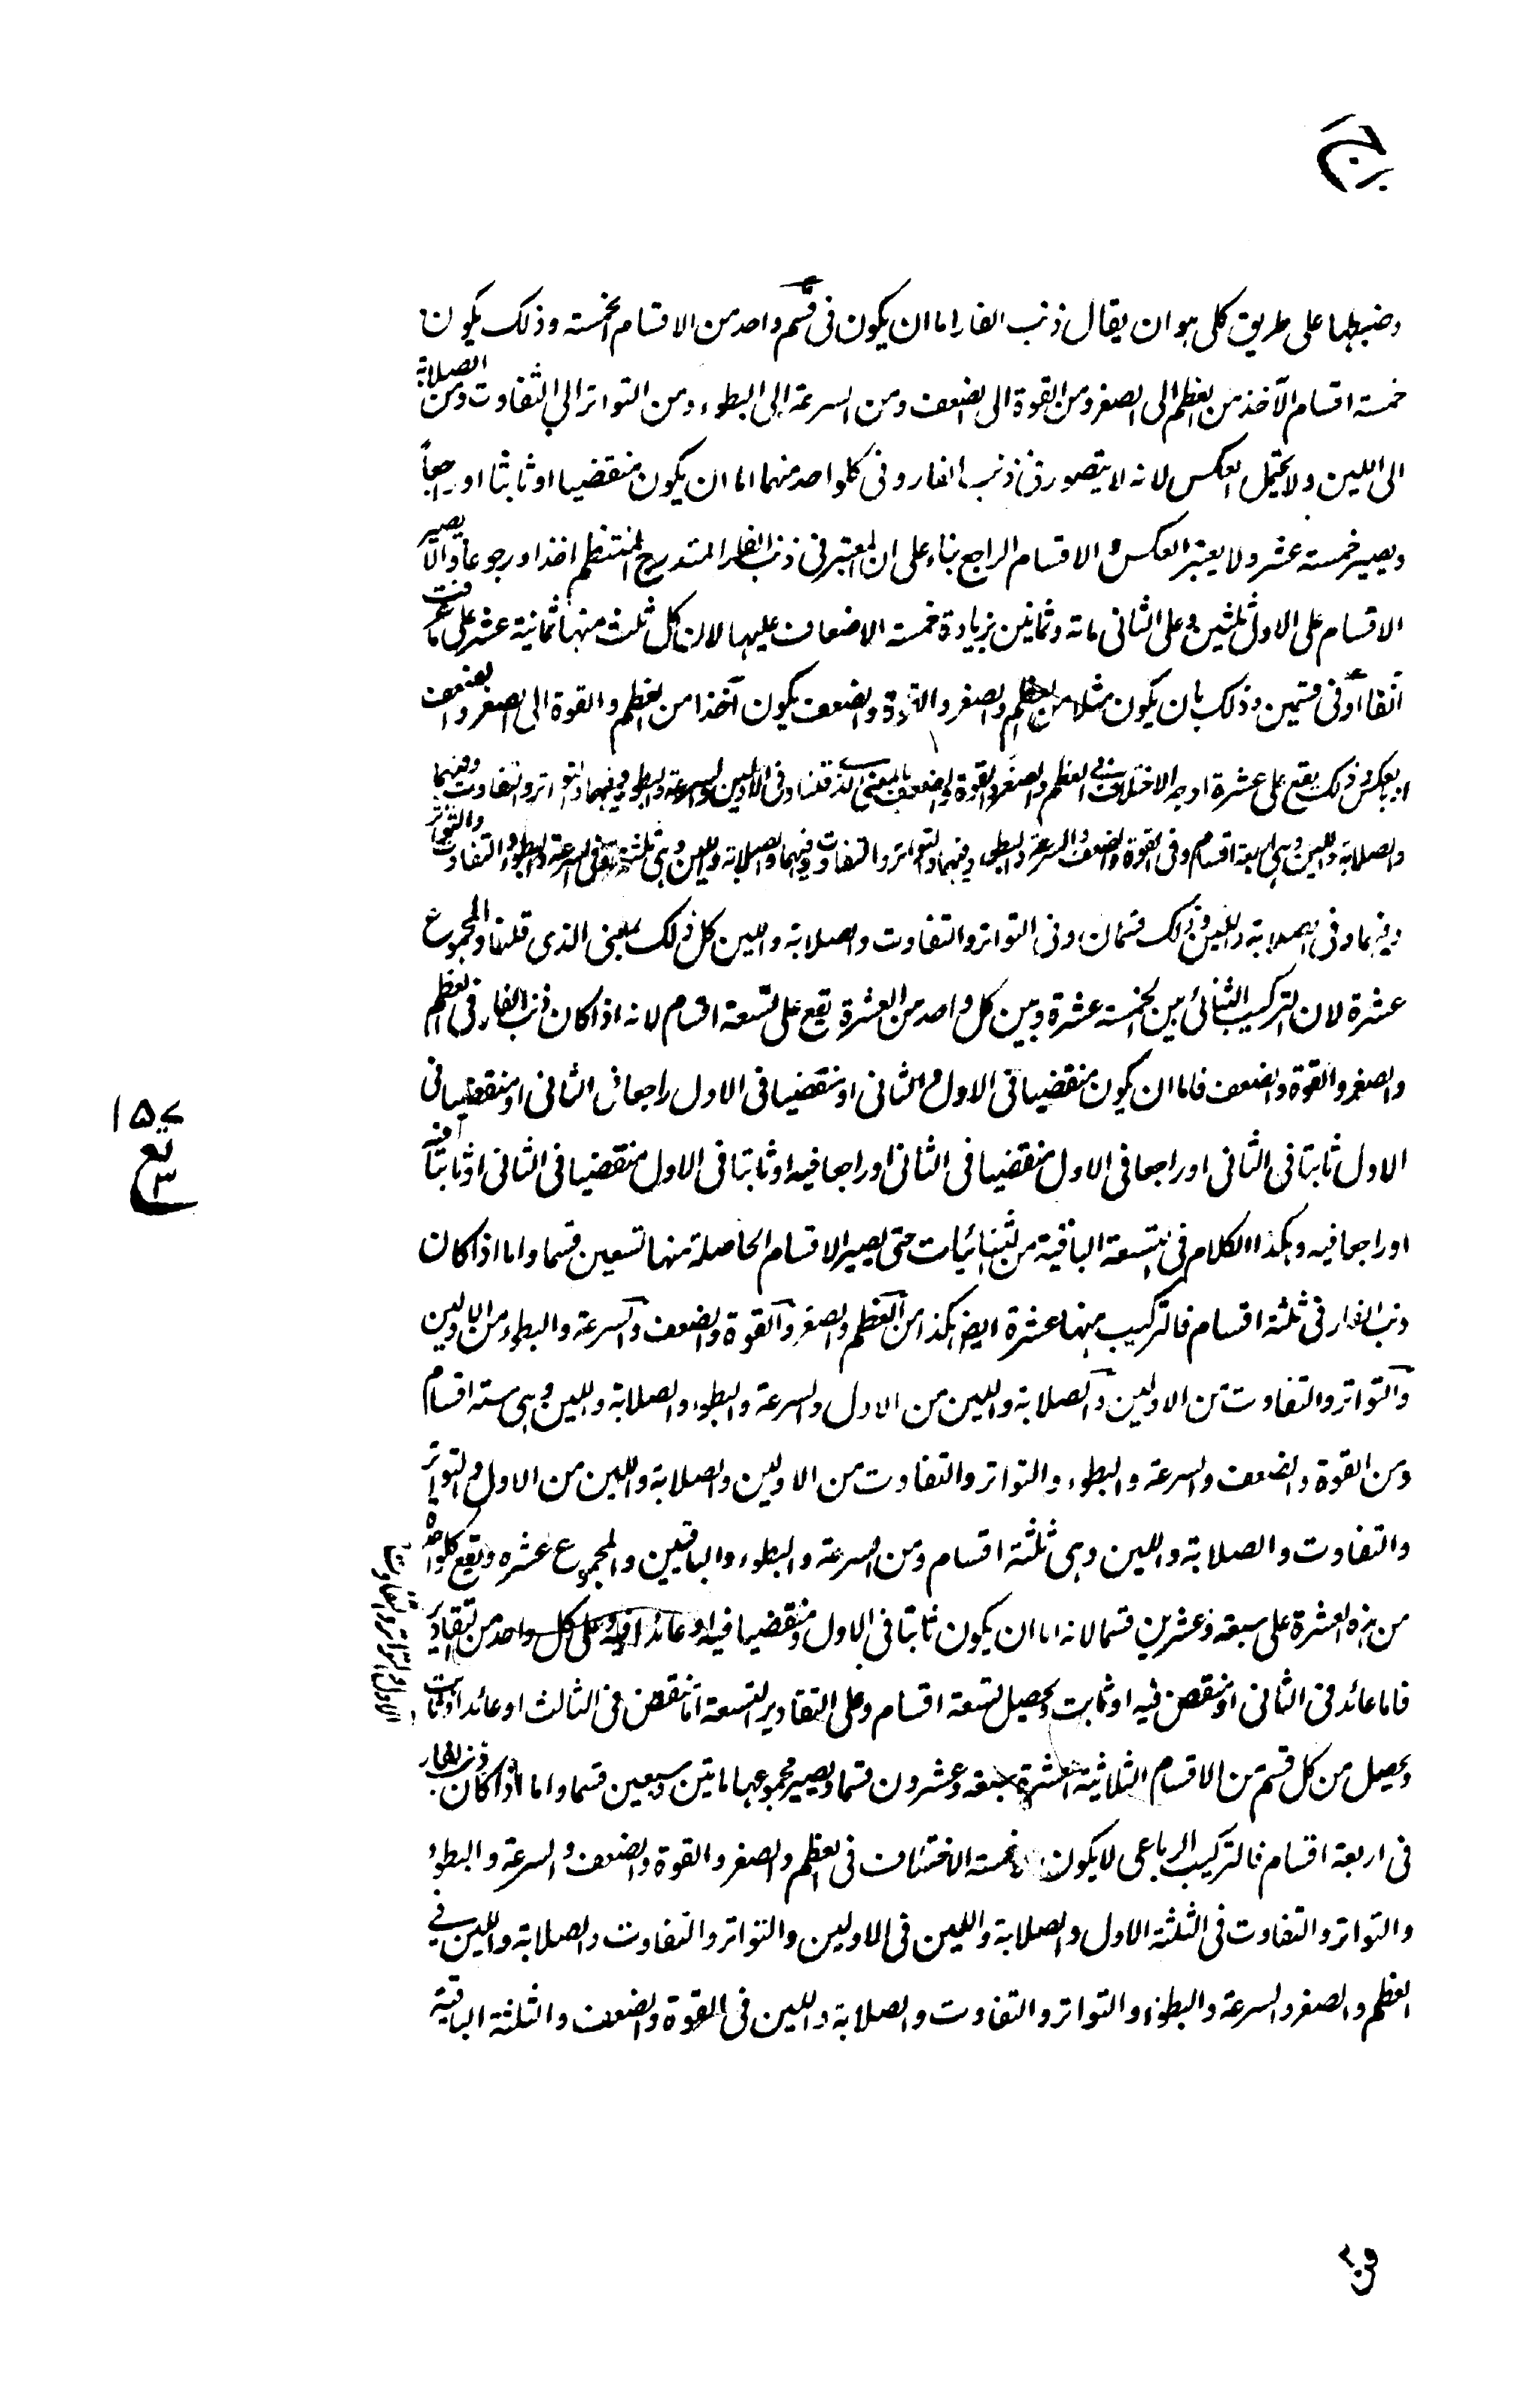 وضبطها على طريق كلى هو ان يقال ذنب الفار اما ان يكون فى قسم واحد من الاقسام الخمسته وذلك يكون
خمسته اقسام الآخذ من العظم الى الصغر ومن القوة الى الضعف ومن السرعة الى البطوء ومن التواتر الي التفاوت ومن الصلابة
الى اللين ولا يحتمل العكس لانه لا يتصور فى ذنب الفار وفى كلواحد منهما اما ان يكون منقضيا او ثابتا او راجعاً
ويصير خمسته عشر ولا يعتبر العكس الاقسام الراجع بناء على ان المعتبر فى ذنب الفار المتدرج المنتظم اخذا ورجوعا والا يصير
الاقسام على الاول ثلثين وعلى الثانى مائة وثمانين بزيادة خمسته الاضعاف عليها لان كل ثلث منها ثمانية عشر على ما عرفت
آنفا او فى قسمين وذلك بان يكون مثلا من العظم والصغر والقوة والضعف يكون آخذا من العظم والقوة الى الصغر والضعف
او بالعكس وذلك يقع على عشرة اوجه الاختلاف فى العظم والصغر والقوة والضعف بالمعنى الذى قلنا وفى الاولين والسرعة والبطوء وفيهما والتواتر والتفاوت وفيهما
والصلابة واللين وهى اربعة اقسام وفى القوة والضعف والسرعة والبطوء وفيهما والتواتر والتفاوت وفيهما والصلابة واللين وهى ثلثة وفى السرعة والبطوء والتواتر والتفاوت
وفيهما وفى الصلابة واللين وذلك قسمان وفى التواتر والتفاوت والصلابة واللين كل ذلك بالمعنى الذى قلنا والمجموع
عشرة لان التركيب الثنائى بين الخمسته عشرة وبين كل واحد من العشرة يقع على تسعة اقسام لانه اذا كان ذنب الفار فى العظم
والصغر والقوة والضعف فاما ان يكون منقضيا فى الاول والثانى او منقضيا فى الاول راجعا فى الثانى او منقضيا فى
الاول ثابتا فى الثانى او راجعا فى الاول منقضيا فى الثانى او راجعا فيه او ثابتا فى الاول منقضيا فى الثانى او ثابتا فيه
او راجعا فيه وهكذا الكلام فى التسعة الباقية من الثنائيات حتى يصير الاقسام الحاصلة منها تسعين قسما واما اذا كان
ذنب الفار فى ثلثة اقسام فالتركيب منها عشرة ايضا هكذا من العظم والصغر والقوة والضعف والسرعة والبطوء من الاولين
والتواتر والتفاوت من الاولين والصلابة واللين من الاول والسرعة والبطوء والصلابة واللين وهى ستة اقسام
ومن القوة والضعف والسرعة والبطوء والتواتر والتفاوت من الاولين والصلابة واللين من الاول والتواتر
والتفاوت والصلابة واللين وهى ثلثة اقسام ومن السرعة والبطوء والباقيين والمجموع عشره ويقع كلواحدة
من هذه العشرة على سبعة وعشرين قسما لانه اما ان يكون ثابتا فى الاول ومنقضيا فيه او عائدا فيه وعلى كل واحد من التقادير
فاما عائد فى الثانى او منقض فيه او ثابت ويحصل تسعة اقسام وعلى التقادير التسعة اما منقض فى الثالث او عائد او ثابت
ويحصل من كل قسم من الاقسام الثلاثية العشرة سبعة وعشرون قسما ويصير مجموعها ماتين وسبعين قسما واما اذا كان ذنب الفار
فى اربعة اقسام فالتركيب الرباعى لا يكون خمسته الاختلاف فى العظم والصغر والقوة والضعف والسرعة والبطوء
والتواتر والتفاوت فى الثلثة الاول والصلابة واللين فى الاولين والتواتر والتفاوت والصلابة واللين في
العظم والصغر والسرعة والبطوء والتواتر والتفاوت والصلابة واللين فى القوة والضعف والثلثة الباقية
١٥٧